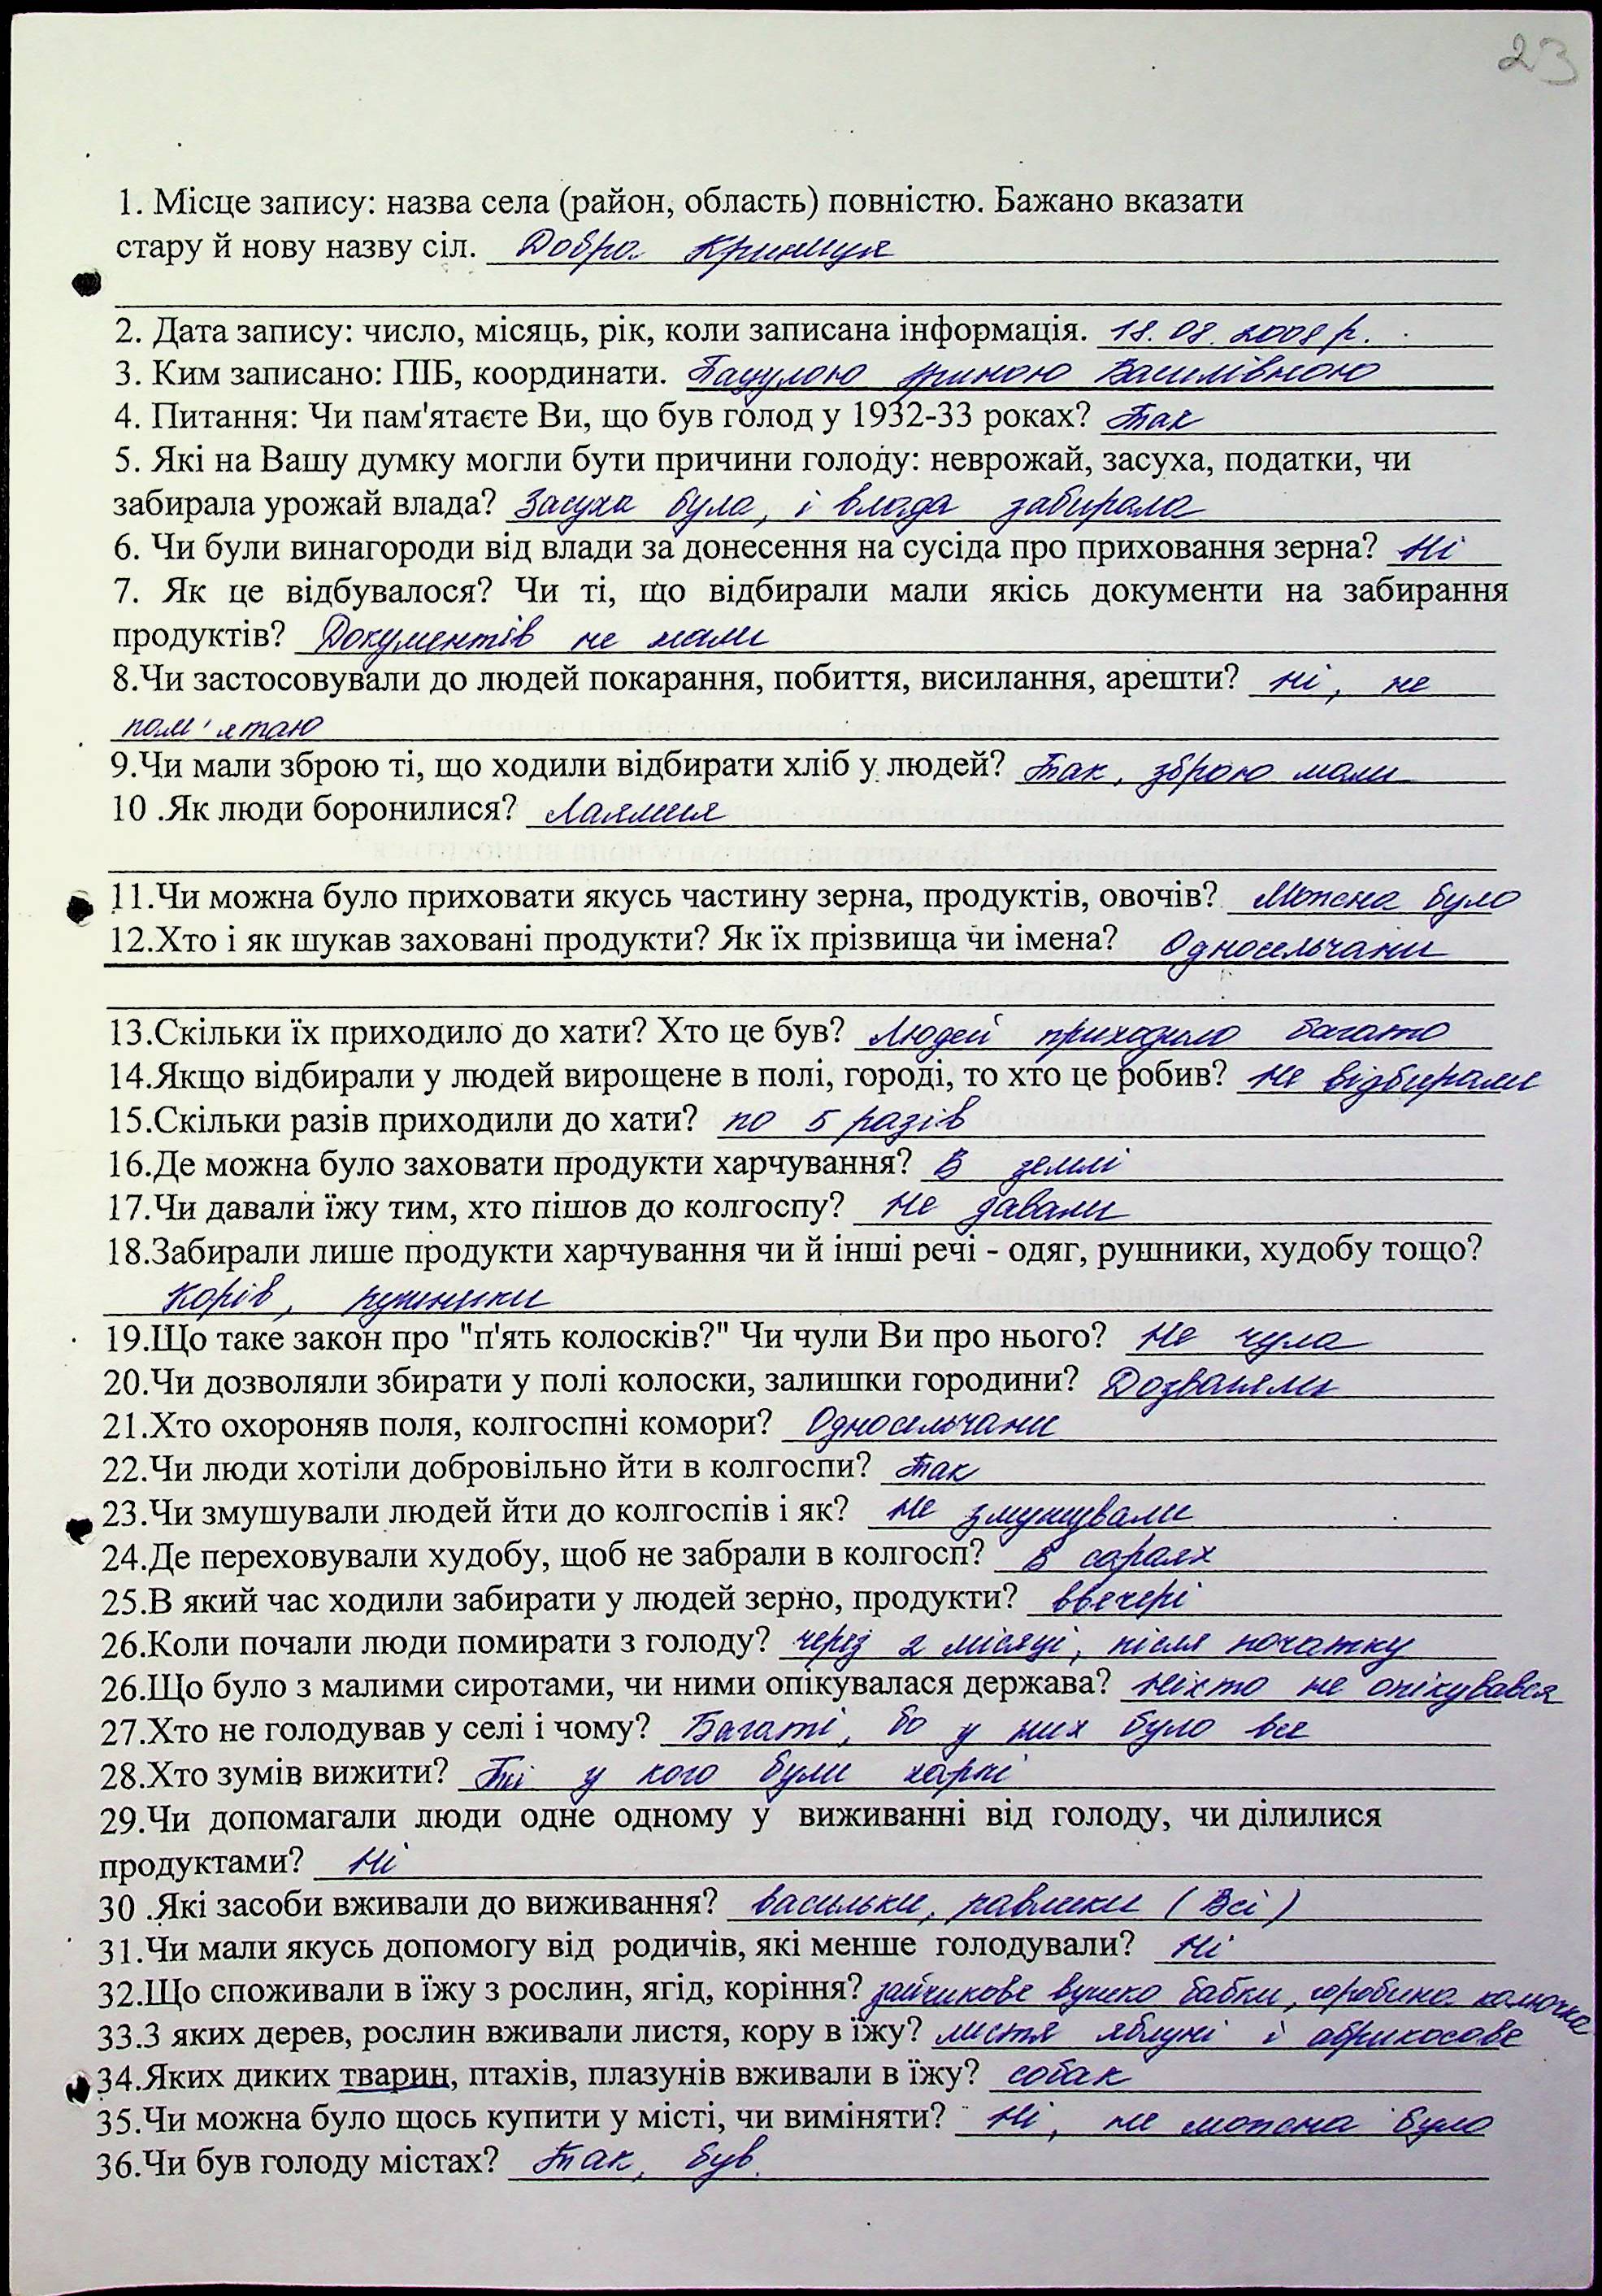 23
1. Місце запису: назва села (район, область) повністю. Бажано вказати
стару й нову назву сіл. Добра Криниця
2. Дата запису: число, місяць, рік, коли записана інформація. 18.08.2008 р.
3. Ким записано: ПІБ, координати. Василівною
4. Питання: Чи пам'ятаєте Ви, що був голод у 1932-33 роках? Так
5. Які на Вашу думку могли бути причини голоду: неврожай, засуха, податки, чи
забирала урожай влада? Засуха була, і влада забирала
6. Чи були винагороди від влади за донесення на сусіда про приховання зерна? Ні
7. Як це відбувалося? Чи ті, що відбирали мали якісь документи на забирання
продуктів? Документів не мали
8.Чи застосовували до людей покарання, побиття, висилання, арешти? Ні, не
пам'ятаю
9.Чи мали зброю ті, що ходили відбирати хліб у людей? Так, зброю мали
10 .Як люди боронилися? Лаялися
11.Чи можна було приховати якусь частину зерна, продуктів, овочів? Можна було
12.Хто і як шукав заховані продукти? Як їх прізвища чи імена? Односельчани
13.Скільки їх приходило до хати? Хто це був? Людей приходило багато
14.Якщо відбирали у людей вирощене в полі, городі, то хто це робив? Не відбирали
15.Скільки разів приходили до хати? по 5 разів
16.Де можна було заховати продукти харчування? В землі
17.Чи давали їжу тим, хто пішов до колгоспу? Не давали
18.Забирали лише продукти харчування чи й інші речі - одяг, рушники, худобу тощо?
Корів, рушники
19.Що таке закон про "п'ять колосків?" Чи чули Ви про нього? Не чула
20.Чи дозволяли збирати у полі колоски, залишки городини? Дозваляли
21.Хто охороняв поля, колгоспні комори? Односельчани
22.Чи люди хотіли добровільно йти в колгоспи? Так
23.Чи змушували людей йти до колгоспів і як? Не змушували
24.Де переховували худобу, щоб не забрали в колгосп? В сараях
25.В який час ходили забирати у людей зерно, продукти? ввечері
26.Коли почали люди помирати з голоду? через 2 місяці, після початку
26.Що було з малими сиротами, чи ними опікувалася держава? Ніхто не опікувався
27.Хто не голодував у селі і чому? Багаті, бо у них було все
28.Хто зумів вижити? Ті у кого були харчі
29.Чи допомагали люди одне одному у виживанні від голоду, чи ділилися
продуктами? Ні
30 .Які засоби вживали до виживання? васильки, равлики (Всі)
31.Чи мали якусь допомогу від родичів, які менше голодували? Ні
32.Що споживали в їжу з рослин, ягід, коріння? зайчикове вушко бабки, колючка
33.З яких дерев, рослин вживали листя, кору в їжу? листя яблуні і абрикосове
34.Яких диких тварин, птахів, плазунів вживали в їжу? собак
35.Чи можна було щось купити у місті, чи виміняти? Ні, не можна було
36.Чи був голоду містах? Так, був